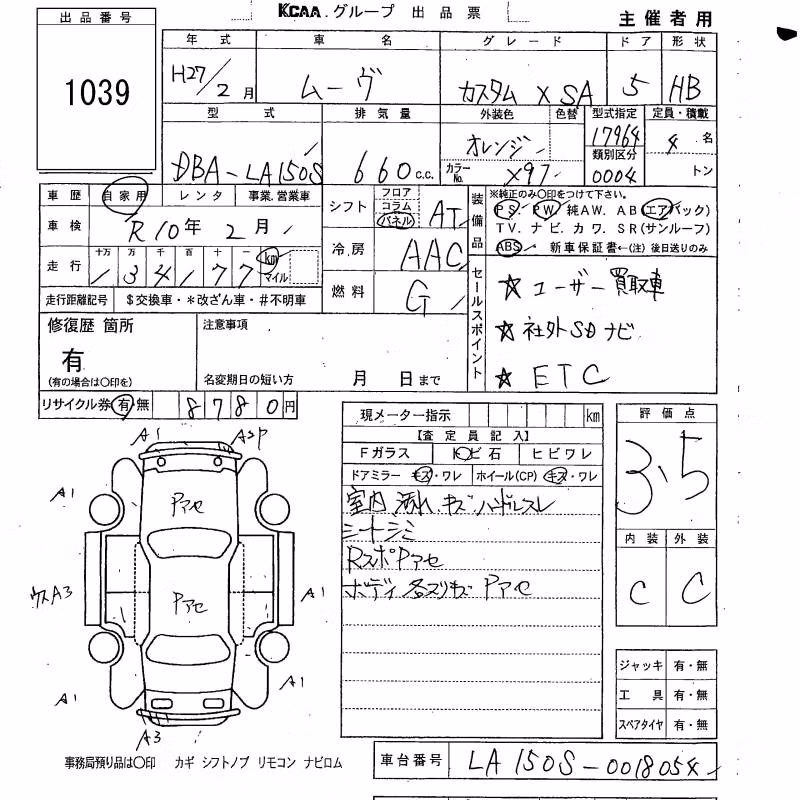 KCAA.グループ 出品票
主催者用
出品番号
1039
年式 車名 グレード ドア 形状
H27/2月 ムーヴ カスタム X SA 5 HB
型式 排気量 外装色 色替 型式指定 定員・積載
DBA-LA150S 660c.c. オレンジ 17964 4名
カラーNo. X97 類別区分 0004 トン
車歴 自家用 レンタ 事業.営業車
車検 R10年2月
走行 十万 万 千 百 十 一
134177 km マイル
走行距離記号 $交換車・*改ざん車・#不明車
シフト フロア コラム パネル AT
冷房 AAC
燃料 G
装備品 ※純正のみ〇印をつけて下さい。
PS. PW. 純AW. AB(エアバック)
TV. ナビ. カワ. SR(サンルーフ)
ABS 新車保証書←(注) 後日送りのみ
セールスポイント
☆ ユーザー買取車
☆ 社外SDナビ
☆ ETC
修復歴 箇所
有
(有の場合は〇印を)
注意事項
名変期日の短い方 月 日まで
リサイクル券 有 無 8780円
現メーター指示 km
【査定員記入】
Fガラス トビ石 ヒビワレ
ドアミラー キズ・ワレ ホイール(CP) キズ・ワレ
室内 汚れ.キズ ハンドルスレ
シートシミ
RスポPアセ
ボディ 各スリキズ Pアセ
評価点
3.5
内装 外装
C C
A1 A3P
A1 Pアセ A1
ウスA3 Pアセ A1
A1 A1
A3
ジャッキ 有・無
工具 有・無
スペアタイヤ 有・無
事務局預り品は〇印 カギ シフトノブ リモコン ナビロム
車台番号 LA150S-0018054